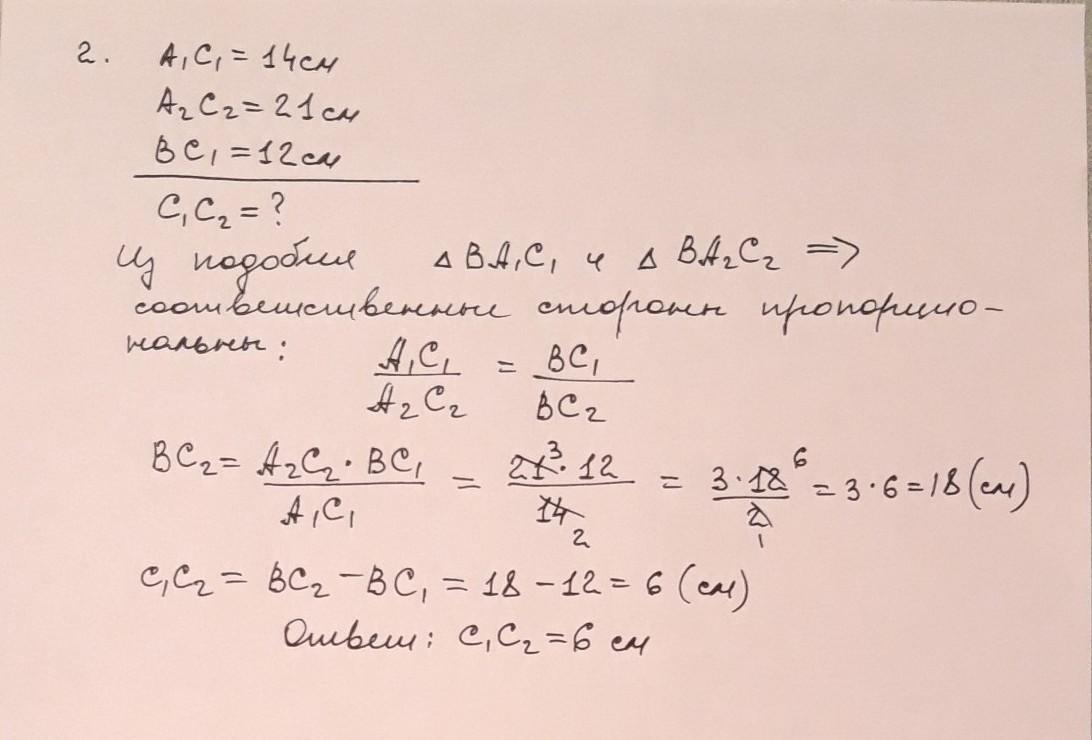 2. A₁C₁ = 14см
A₂C₂ = 21см
BC₁ = 12см
C₁C₂ = ?
Из подобия △BA₁C₁ и △BA₂C₂ ⇒
соответственные стороны пропорцио-
нальны: A₁C₁/A₂C₂ = BC₁/BC₂
BC₂ = A₂C₂·BC₁/A₁C₁ = 21³·12/14₂ = 3·12⁶/2₁ = 3·6 = 18 (см)
C₁C₂ = BC₂ − BC₁ = 18 − 12 = 6 (см)
Ответ: C₁C₂ = 6 см